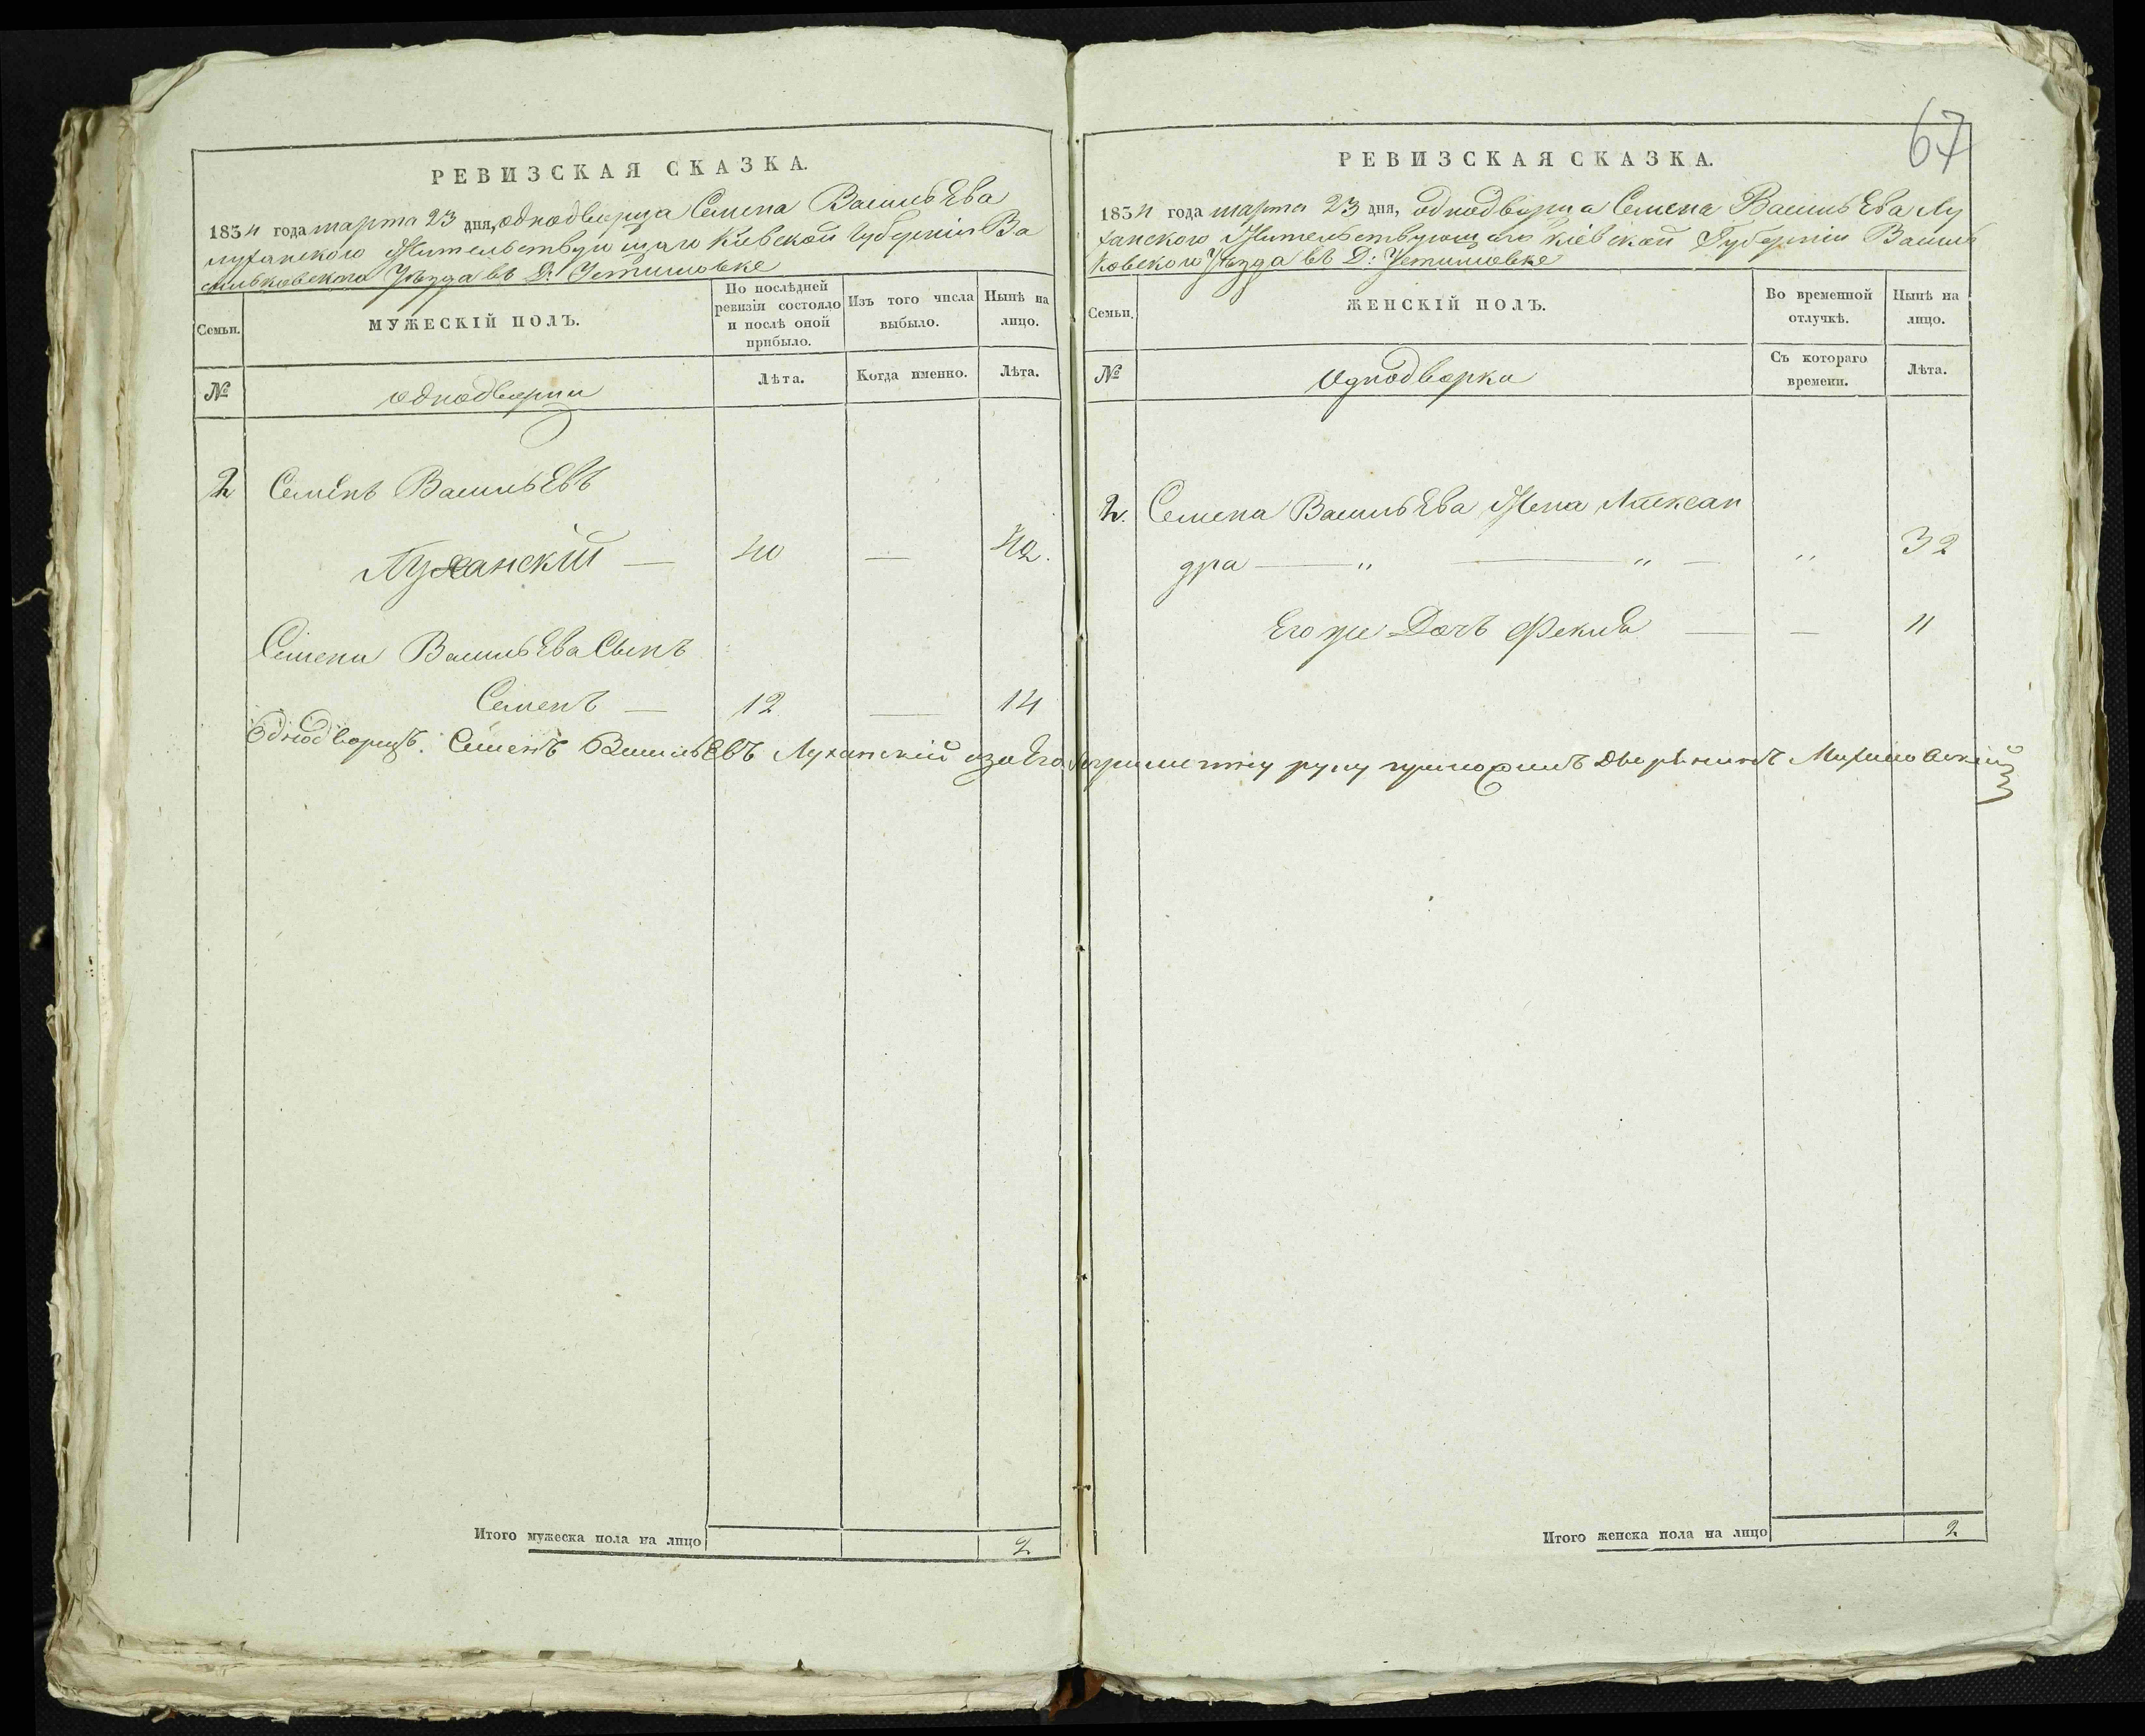 РЕВИЗСКАЯ СКАЗКА.
1834 года марта 23 дня, однодворца Семена Васильева
Луханского Жительствующаго Кіевской Губерніи Ва
сильковского Уѣзда въ Д: Устимовке
Семьи.
МУЖЕСКІЙ ПОЛЪ.
По послѣдней ревизіи состояло и послѣ оной прибыло.
Изъ того числа выбыло.
Нынѣ на лицо.
№
однодворцы
Лѣта.
Когда именно.
Лѣта.
2 Семенъ Васильевъ
Луханскій — 40 — 42.
Семена Васильева Сынъ
Семенъ — 12 — 14
Однодворецъ. Семенъ Васильевъ Луханскій а за Его руку приложилъ Дворянинъ
Итого мужеска пола на лицо 2
67
РЕВИЗСКАЯ СКАЗКА.
1834 года марта 23 дня, однодворца Семена Васильева Лу
ханского Жительствующаго Кіевской Губерніи Василь
ковского Уѣзда въ Д: Устимовке
Семьи.
ЖЕНСКІЙ ПОЛЪ.
Во временной отлучкѣ.
Нынѣ на лицо.
№
Однодворки
Съ котораго времени.
Лѣта.
2. Семена Васильева Жена Алексан
дра — „ — „ — „ 32
Его же Дочь Фекла — — 11
Итого женска пола на лицо 2